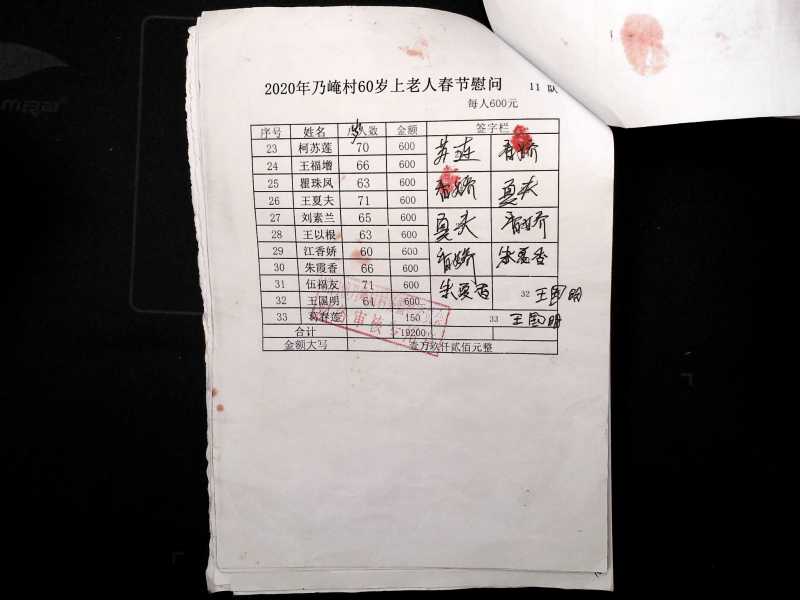 2020年乃崦村60岁上老人春节慰问 11 队
每人600元
序号 姓名 人数 金额 签字栏
23 柯苏莲 70 600 苏莲 香娇
24 王福增 66 600
25 瞿珠凤 63 600 香娇 夏夫
26 王夏夫 71 600
27 刘素兰 65 600 夏夫 香娇
28 王以根 63 600
29 江香娇 60 600 香娇 朱霞香
30 朱霞香 66 600
31 伍福友 71 600 朱霞香 32 王国明
32 王国明 61 600
33 春莲 150 33 王国明
合计 19200
金额大写 壹万玖仟贰佰元整
审核